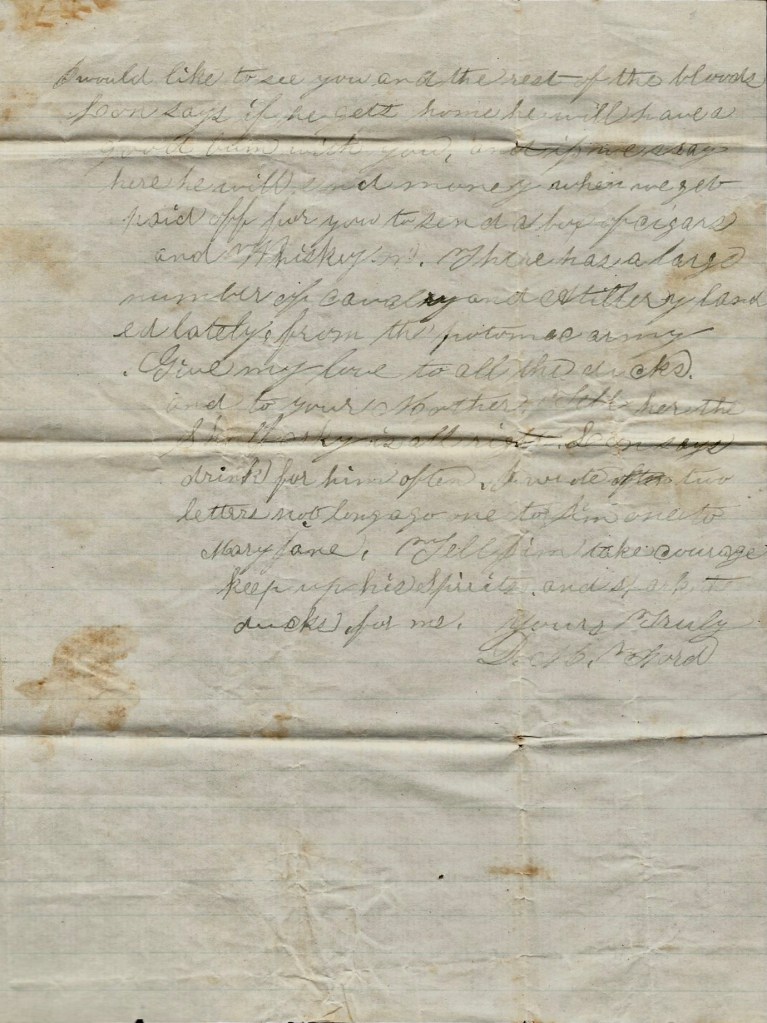 I would like to see you and the rest of the bloods
Leon says if he gets home he will have a
good bum with you, and if we stay
here he will send money when we get
paid off for you to send a box of cigars
and Whiskey in. There has a large
number of cavalry and Artillery land
ed lately from the potomac army
. Give my love to all the ducks.
and to your Mother, Tell her the
is all right. Leon says
drink for him often. I wrote two
letters not long ago one to Jim one to
Mary Jane. Tell Jim take courage
keep up his Spirits. and
ducks for me. Yours Truly
D. Mc. Nord